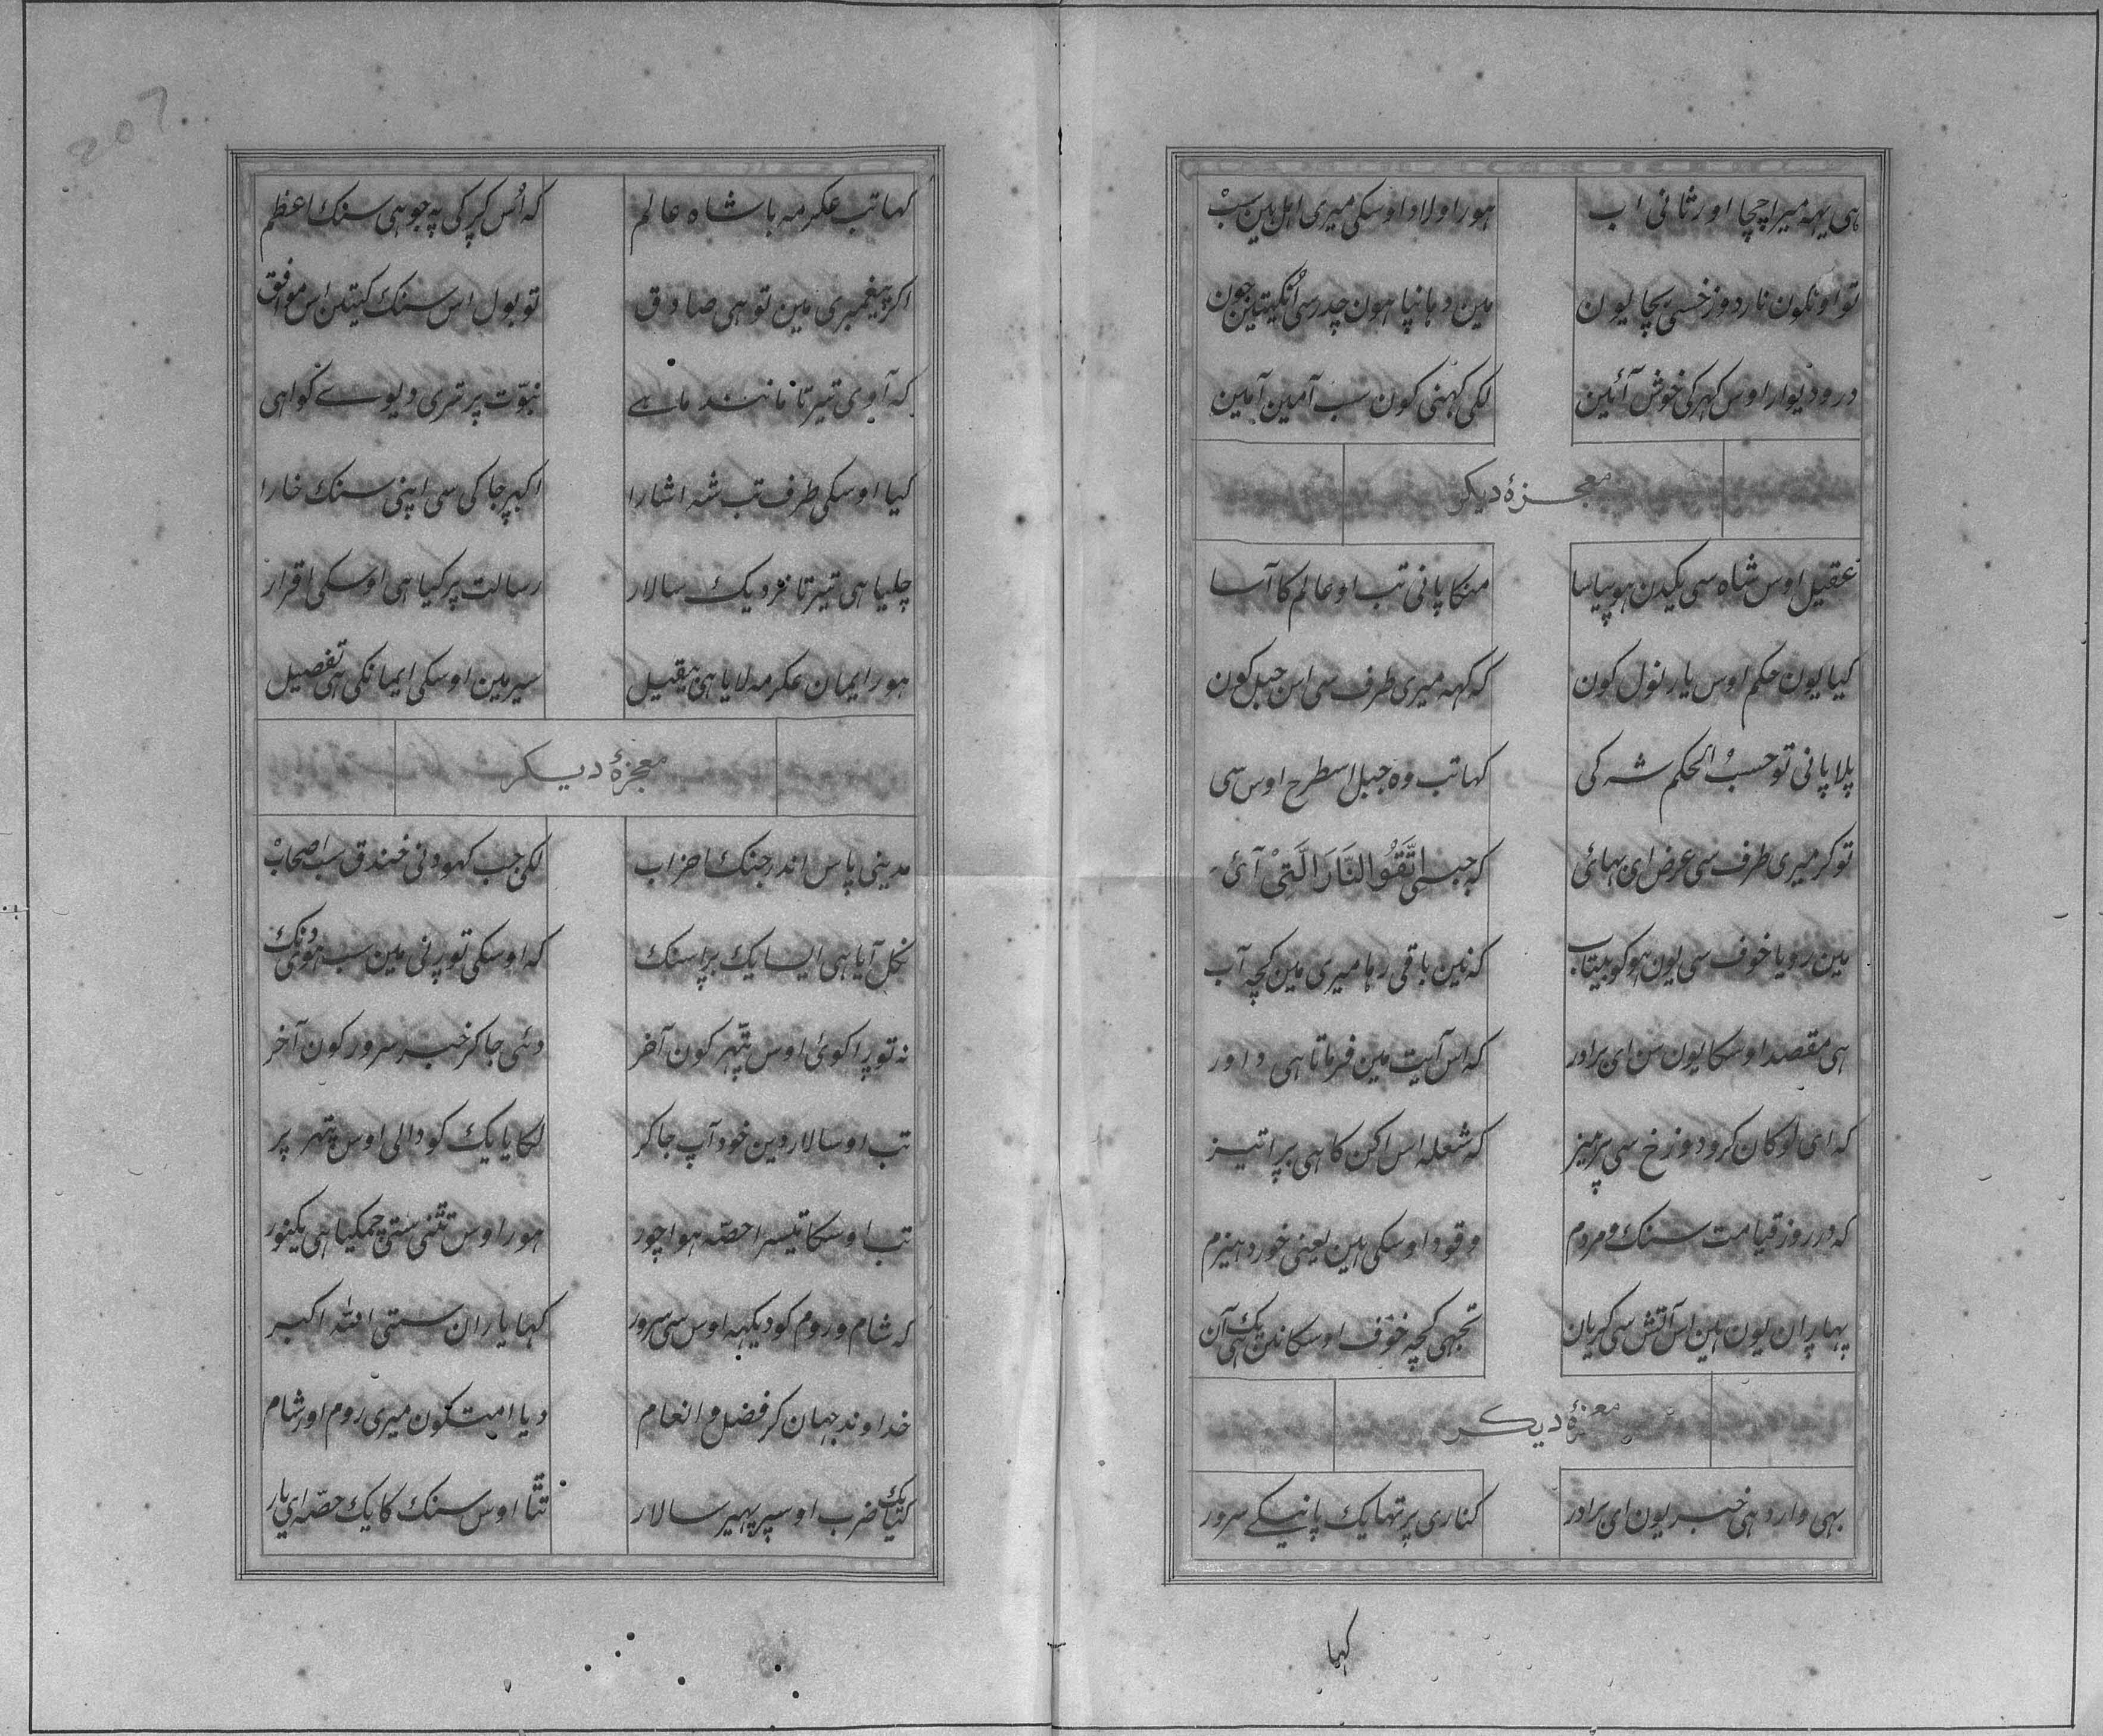 ہی یہہ میرا چچا اور ثانی اب ہور اولاد اوسکی میری اہل مین سب
تو اونکون نار دوزخسی بچا لیون مین دہانپا ہون چدرسی انکیتین جون
در و دیوار اوس کہر کی خوش آئین لکی کہنی کون سب آمین آمین
معجزۂ دیکر
عقیل اوس شاہ سی یکدن ہو پیاسا منکا پانی تب او عالم کا آسا
کیا یون حکم اوس یار نول کون کہ کہہ میری طرف سی اس جبل کون
پلا پانی تو حسبُ الحکم شہ کی کہا تب وہ جبل اسطرح اوس سی
تو کر میری طرف سی عرض ای بہائی کہ جب سی اتَّقُوا النَّارَ الَّتِیْ آئی
مین رویا خوف سی یون ہو کو بیتاب کہ نین باقی رہا میری مین کچہ آب
ہی مقصد اوسکا یون سن ای برادر کہ اس آیت مین فرماتا ہی داور
کہ ای لوکان کرو دوزخ سی پرہیز کہ شعلہ اس اکن کا ہی بڑا تیز
کہ در روز قیامت سنک و مردم وقود اوسکی ہین یعنی خورد ہیزم
پہاڑان یون ہین اس آتش سی کریان تجہی کچہ خوف اوسکا نین یک آن
معجزۂ دیکر
بہی وارد ہی خبر یون ای برادر کناری پر تہا یک پانیکے سرور
کہا
207
کہا تب عکرمہ با شاہ عالم کہ اُس کڑکی پہ جو ہی سنک اعظم
اکر پیغمبری مین تو ہی صادق تو بول اس سنک کیتین اس موافق
کہ آوی تیرتا مانند ماہے نبوّت پر تری دیوے کواہی
کیا اوسکی طرف تب شہ اشارا اکہڑ جاکی سی اپنی سنک خارا
چلیا ہی تیرتا نزدیک سالار رسالت پر کیا ہی اوسکی اقرار
ہور ایمان عکرمہ لایا ہی بیقیل سیر مین اوسکی ایمانکی ہی تفصیل
معجزۂ دیکر
مدینی پاس اندر جنک احزاب لکی جب کہودنی خندق سب اصحاب
نکل آیا ہی ایسا یک بڑا سنک کہ اوسکی توڑنی مین سب ہوئی دنک
نہ توڑا کوئ اوس پتہر کون آخر دئی جا کر خبر سرور کون آخر
تب او سالار دین خود آپ جا کر لکایا یک کودالی اوس پتہر پر
تب اوسکا تیسرا حصّہ ہوا چور ہور اوس تتنی ستی چمکیا ہی یکنور
کہ شام و روم کو دیکہہ اوس سی سرور کہا یاران ستی اللہ اکبر
خداوند جہان کر فضل و انعام دیا امتکون میری روم اور شام
کیتا یک ضرب اوسپر پہیر سالار تتا اوس سنک کا یک حصّہ ای یار